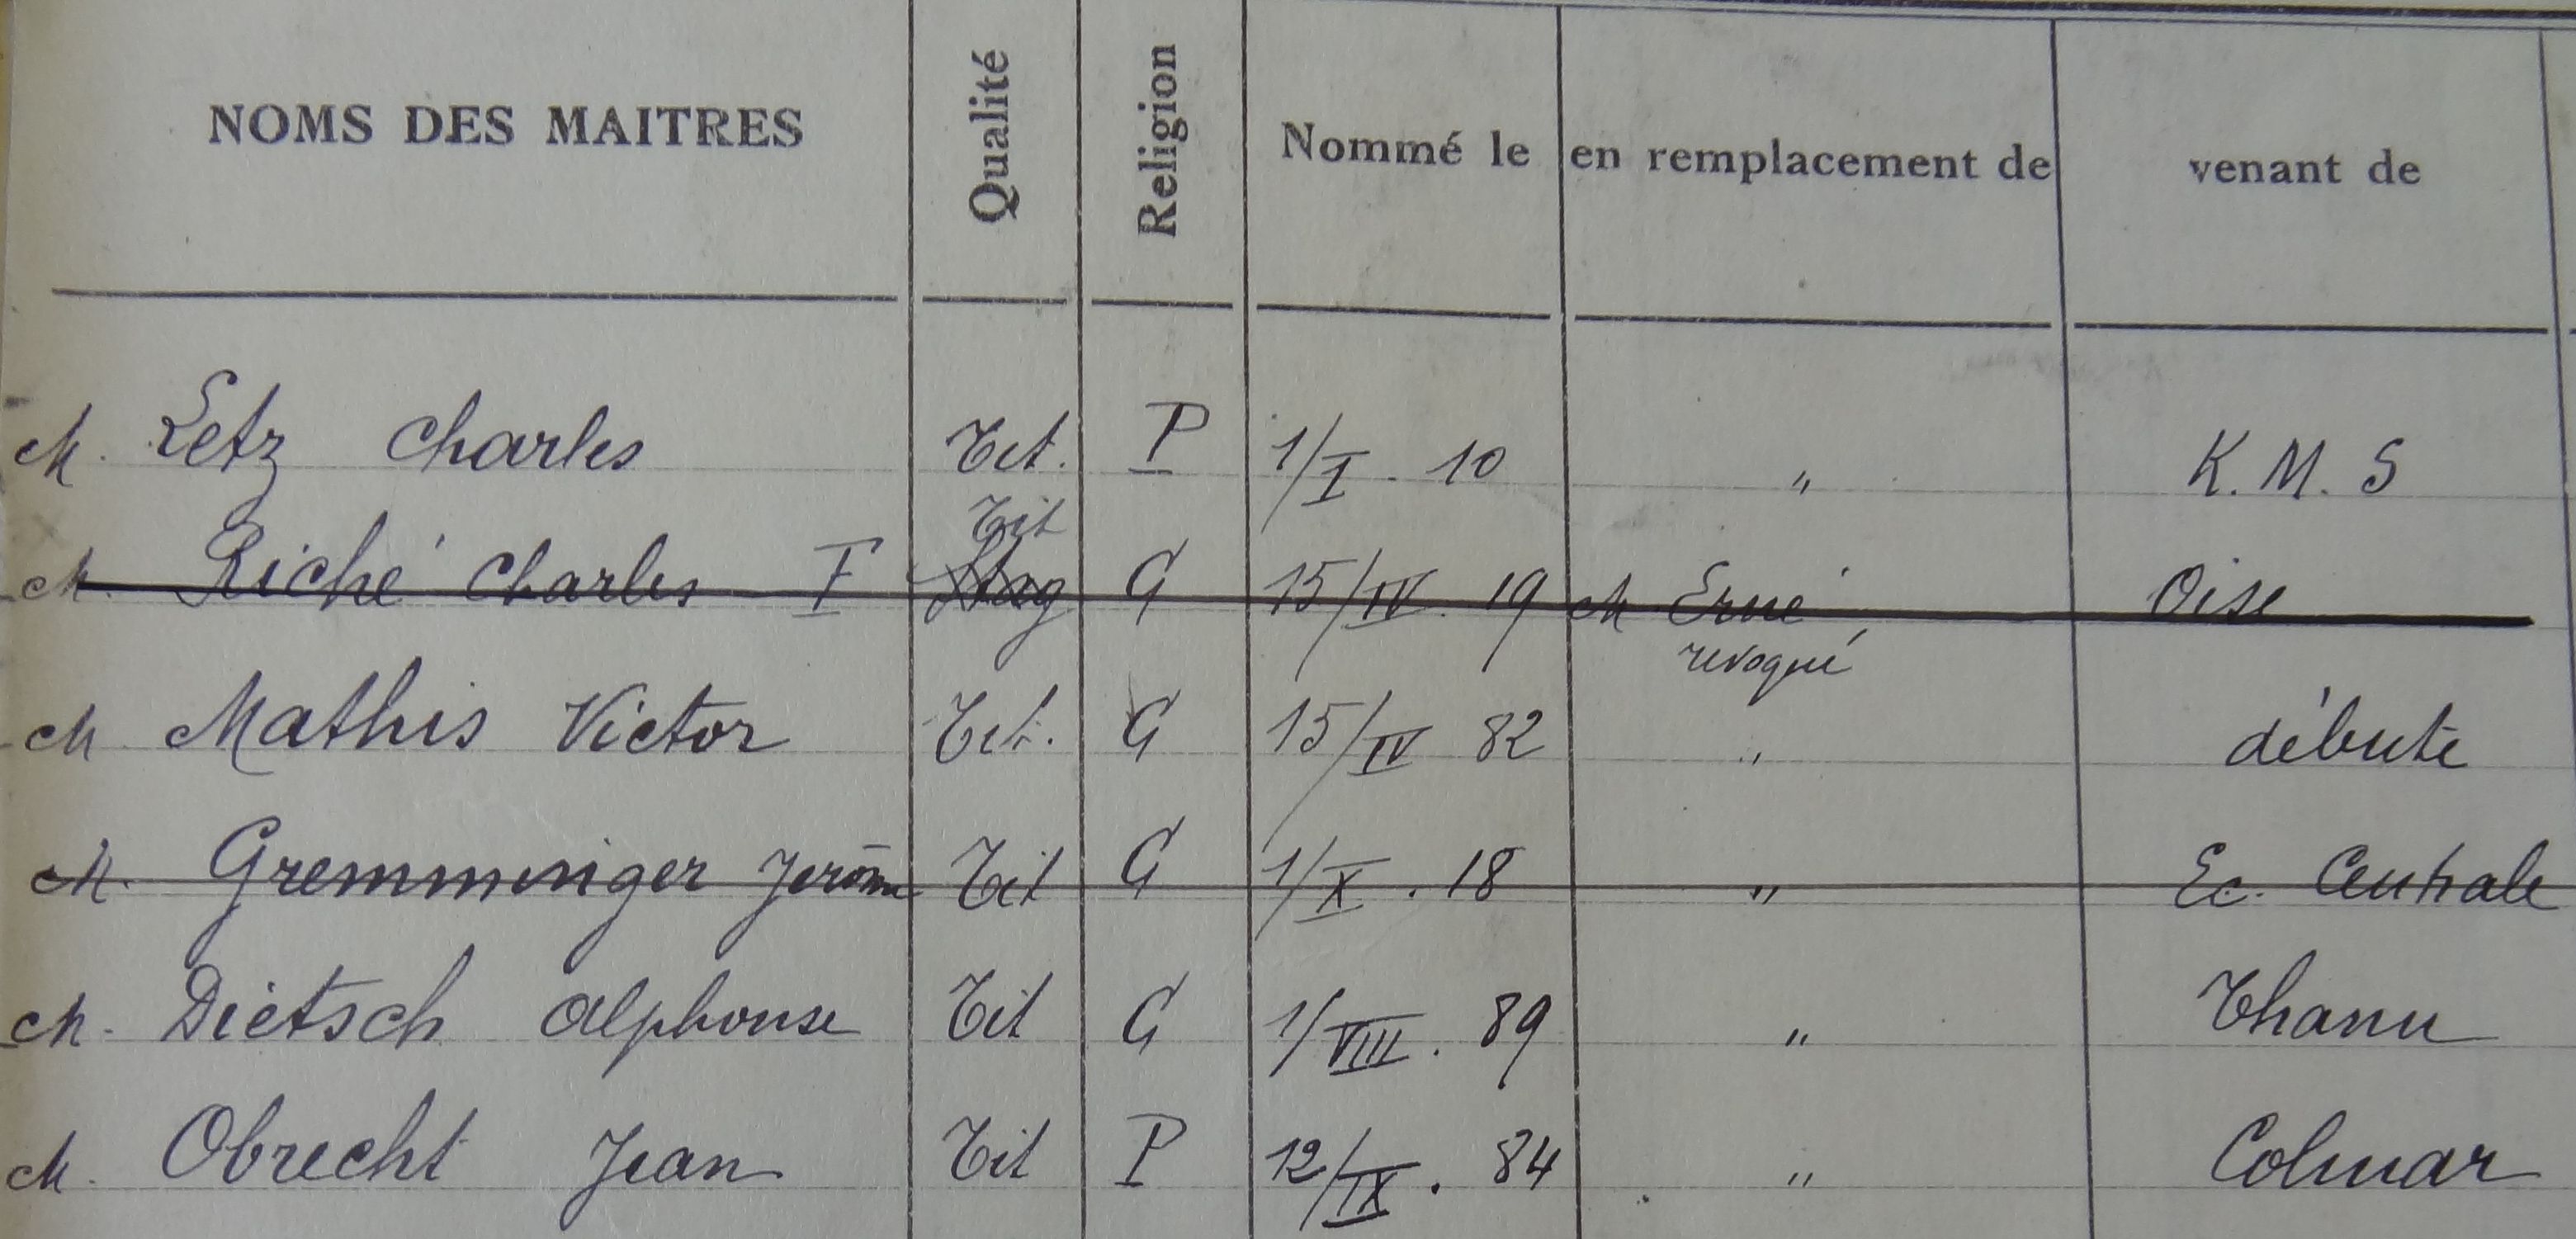 NOMS DES MAITRES Qualité Religion Nommé le en remplacement de venant de
M. Letz Charles Tit. P 1/I. 10 " K. M. S
Tit
M. Riché Charles F Stag C 15/IV. 19 M Erné Oise
révoqué
M Mathis Victor Tit. C 15/IV 82 " débute
M. Gremminger Jérôme Tit C 1/X. 18 " Ec. Centrale
M. Dietsch Alphonse Tit C 1/VIII. 89 " Thann
M. Obrecht Jean Tit P 12/IX. 84 " Colmar